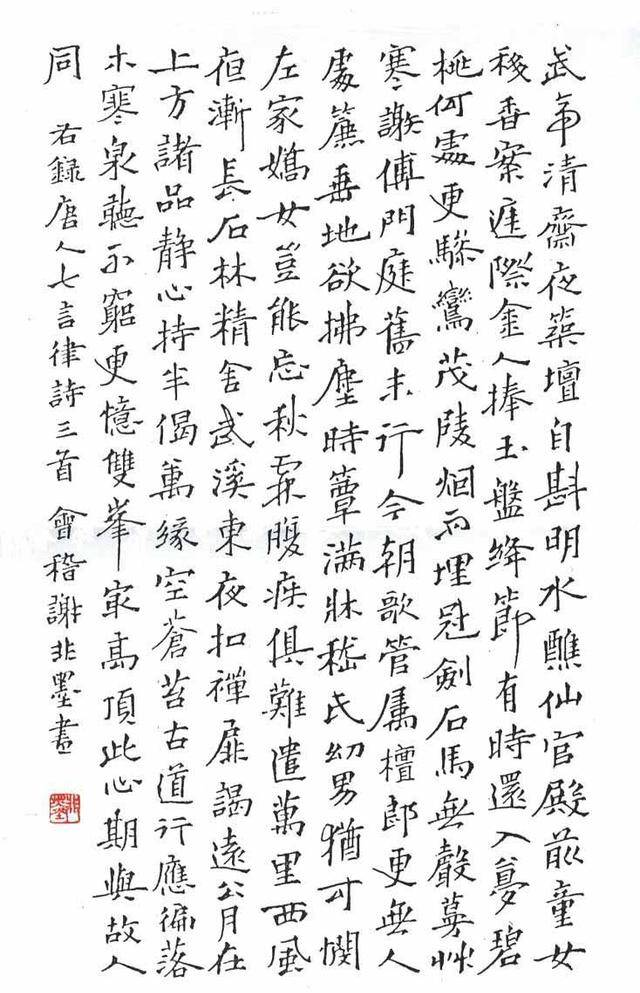 武帝清齋夜築壇自斟明水醮仙官殿前童女
移香案進際金人捧玉盤絳節有時還入夢碧
桃何處更驂鸞茂陵烟雨埋冠劍石馬無聲蔓艸
寒謝傅門庭舊末行今朝歌管屬檀郎更無人
處簾垂地欲拂塵時簟滿牀嵇氏幼男猶可憫
左家嬌女豈能忘秋霖腹疾俱難遣萬里西風
夜漸長石林精舍武溪東夜扣禪扉謁遠公月在
上方諸品靜心持半偈萬緣空蒼苔古道行應徧落
木寒泉聽不窮更憶雙峯冣高頂此心期與故人
同 右錄唐人七言律詩三首 會稽謝非墨書
非墨